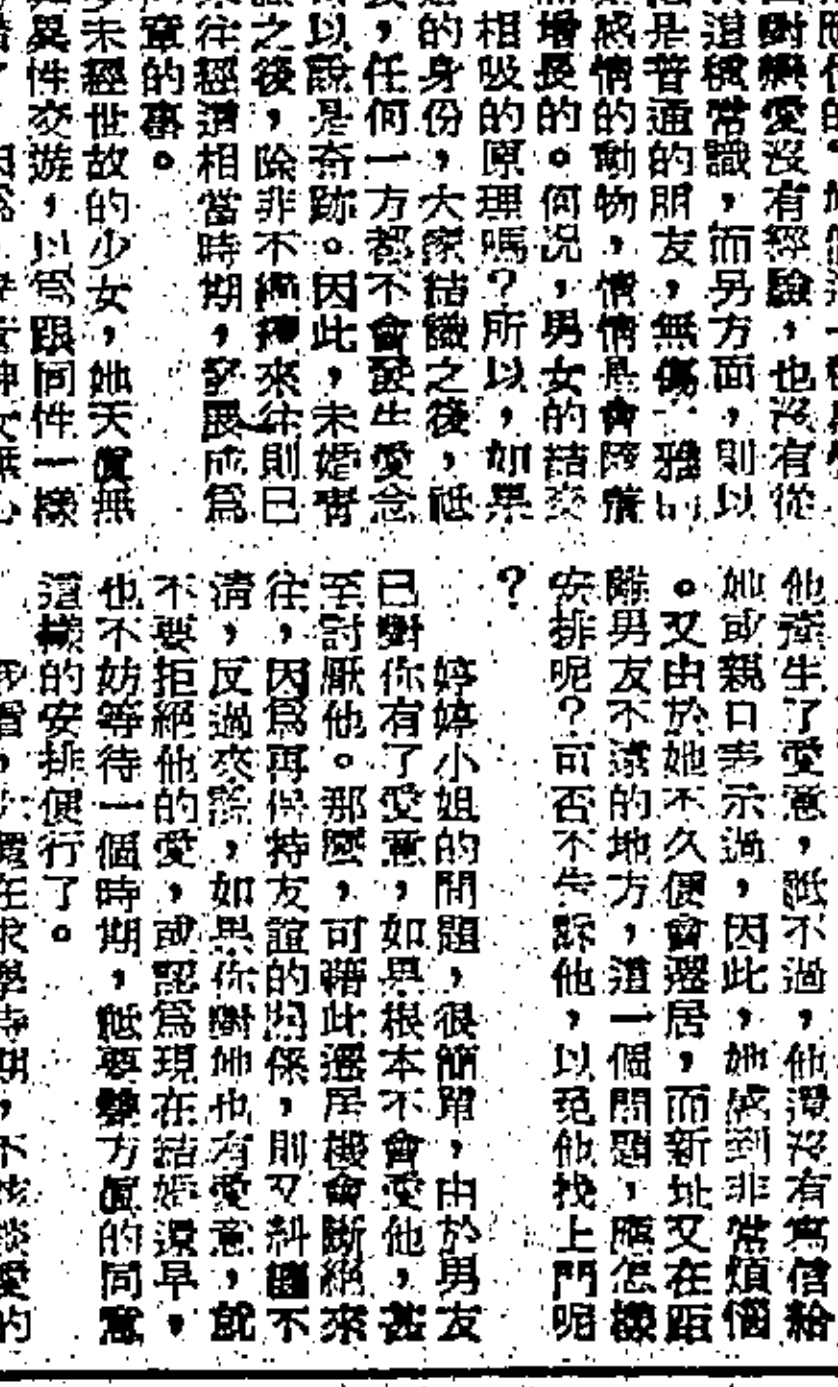 對戀愛沒有經驗，也沒有從
道種常識，而另方面，則以
是普通的朋友，無傷
感情的動物，情是會
增長的。何况，男女的結交
相吸的原理嗎？所以，如果
的身份，大家結識之後，祗
，任何一方都不會發生愛念
以說是奇跡。因此，未婚者
之後，除非不繼續來往則已
往經過相當時期，發展成爲
章的事。
未經世故的少女，她天真無
異性交遊，以爲跟同性一樣
他產生了愛意，祗不過，他還沒有寫信給
她或親口表示過，因此，她感到非常煩惱
。又由於她不久便會遷居，而新址又在距
離男友不遠的地方，這一個問題，應怎樣
安排呢？可否不告訴他，以免他找上門呢
？
婷婷小姐的問題，很簡單，由於男友
已對你有了愛意，如果根本不會愛他，甚
至討厭他。那麼，可藉此遷居機會斷絕來
往，因爲再保持友誼的關係，則又糾纏不
清，反過來說，如果你對他也有愛意，就
不要拒絕他的愛，或認爲現在結婚還早，
也不妨等待一個時期，祗要雙方真的同意
這樣的安排便行了。
在求學時期，不談愛的